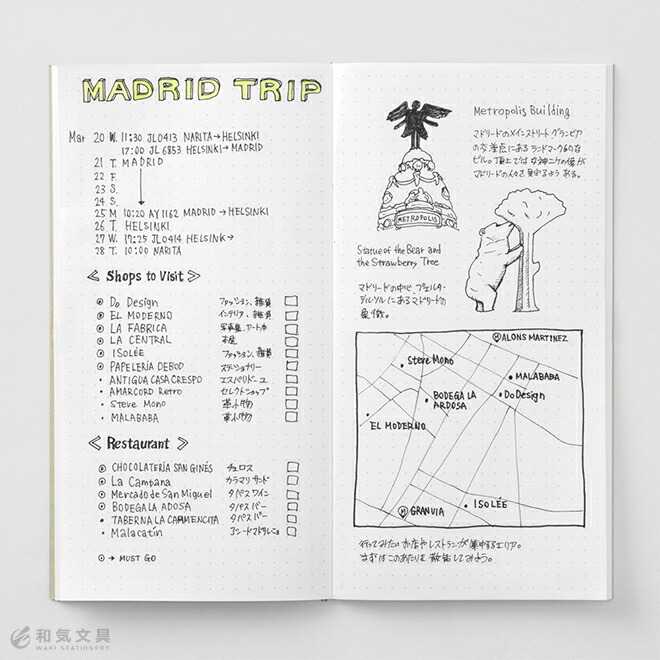 MADRID TRIP
Mar 20 W. 11:30 JL0413 NARITA→HELSINKI
17:00 JL 6853 HELSINKI→MADRID
21 T. MADRID
22 F.
23 S.
24 S.
25 M 10:20 AY1162 MADRID→HELSINKI
26 T. HELSINKI
27 W. 17:25 JL0414 HELSINK→
28 T. 10:00 NARITA
Shops to Visit
Do Design ファッション、雑貨
EL MODERNO インテリア、雑貨
LA FABRICA 写真集、アート本
LA CENTRAL 本屋
ISOLÉE ファッション、雑貨
PAPELERÍA DEBOD ステーショナリー
ANTIGUA CASA CRESPO エスパドリーユ
AMARCORD Retro セレクトショップ
Steve Mono 革小物
MALABABA 革小物
Restaurant
CHOCOLATERÍA SAN GINÉS チュロス
La Campana カラマリサンド
Mercado de San Miguel タパスワイン
BODEGA LA ADOSA タパスバー
TABERNA LA CARMENCITA タパスバー
Malacatín
⊙ → MUST GO
Metropolis Building
マドリードのメインストリート グランビア
の交差点にあるランドマーク的な
ビルの頂上では女神ニケの像が
マドリードの人々を見守るようある。
METROPOLIS
Statue of the Bear and
the Strawberry Tree
マドリードの中心、プエルタ・
デル・ソルにあるマドリードの
象徴。
M ALONS MARTINEZ
Steve Mono
MALABABA
BODEGA LA
ARDOSA
Do Design
EL MODERNO
ISOLÉE
M GRANVIA
行ってみたいお店やレストランが集中するエリア。
まずはこのあたりを散策してみよう。
和気文具
WAKI STATIONERY